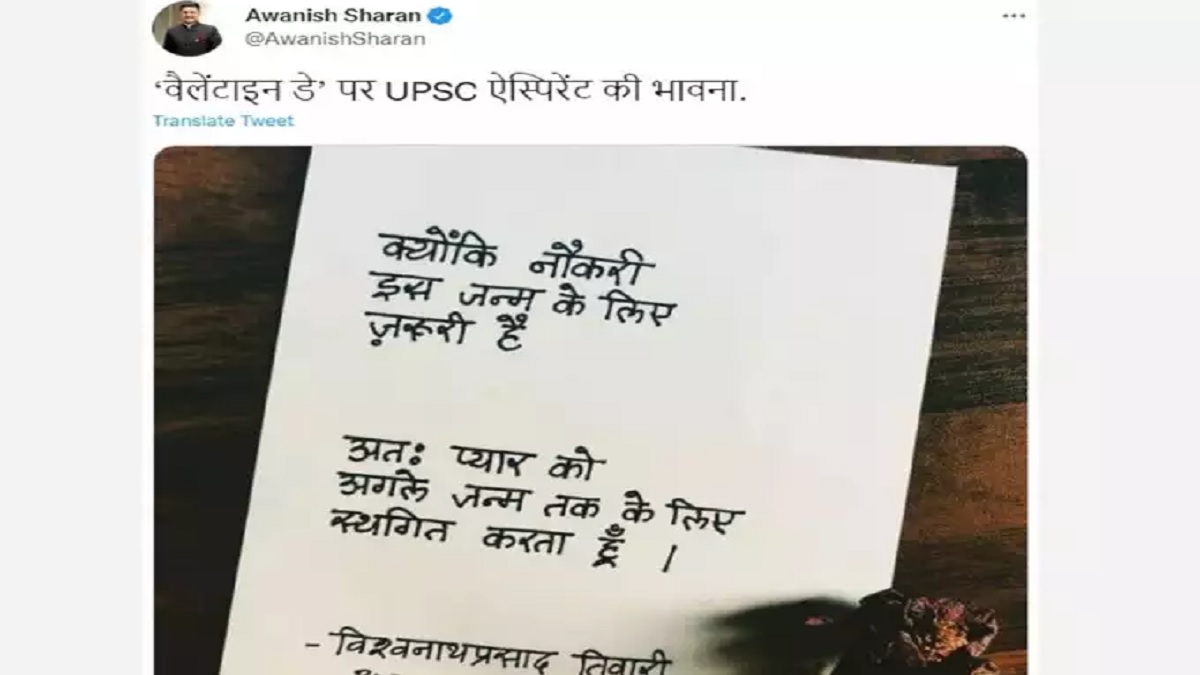 Awanish Sharan
@AwanishSharan
‘वैलेंटाइन डे’ पर UPSC ऐस्पिरेंट की भावना.
Translate Tweet
क्योंकि नौकरी
इस जन्म के लिए
ज़रूरी है
अतः प्यार को
अगले जन्म तक के लिए
स्थगित करता हूँ ।
- विश्वनाथप्रसाद तिवारी